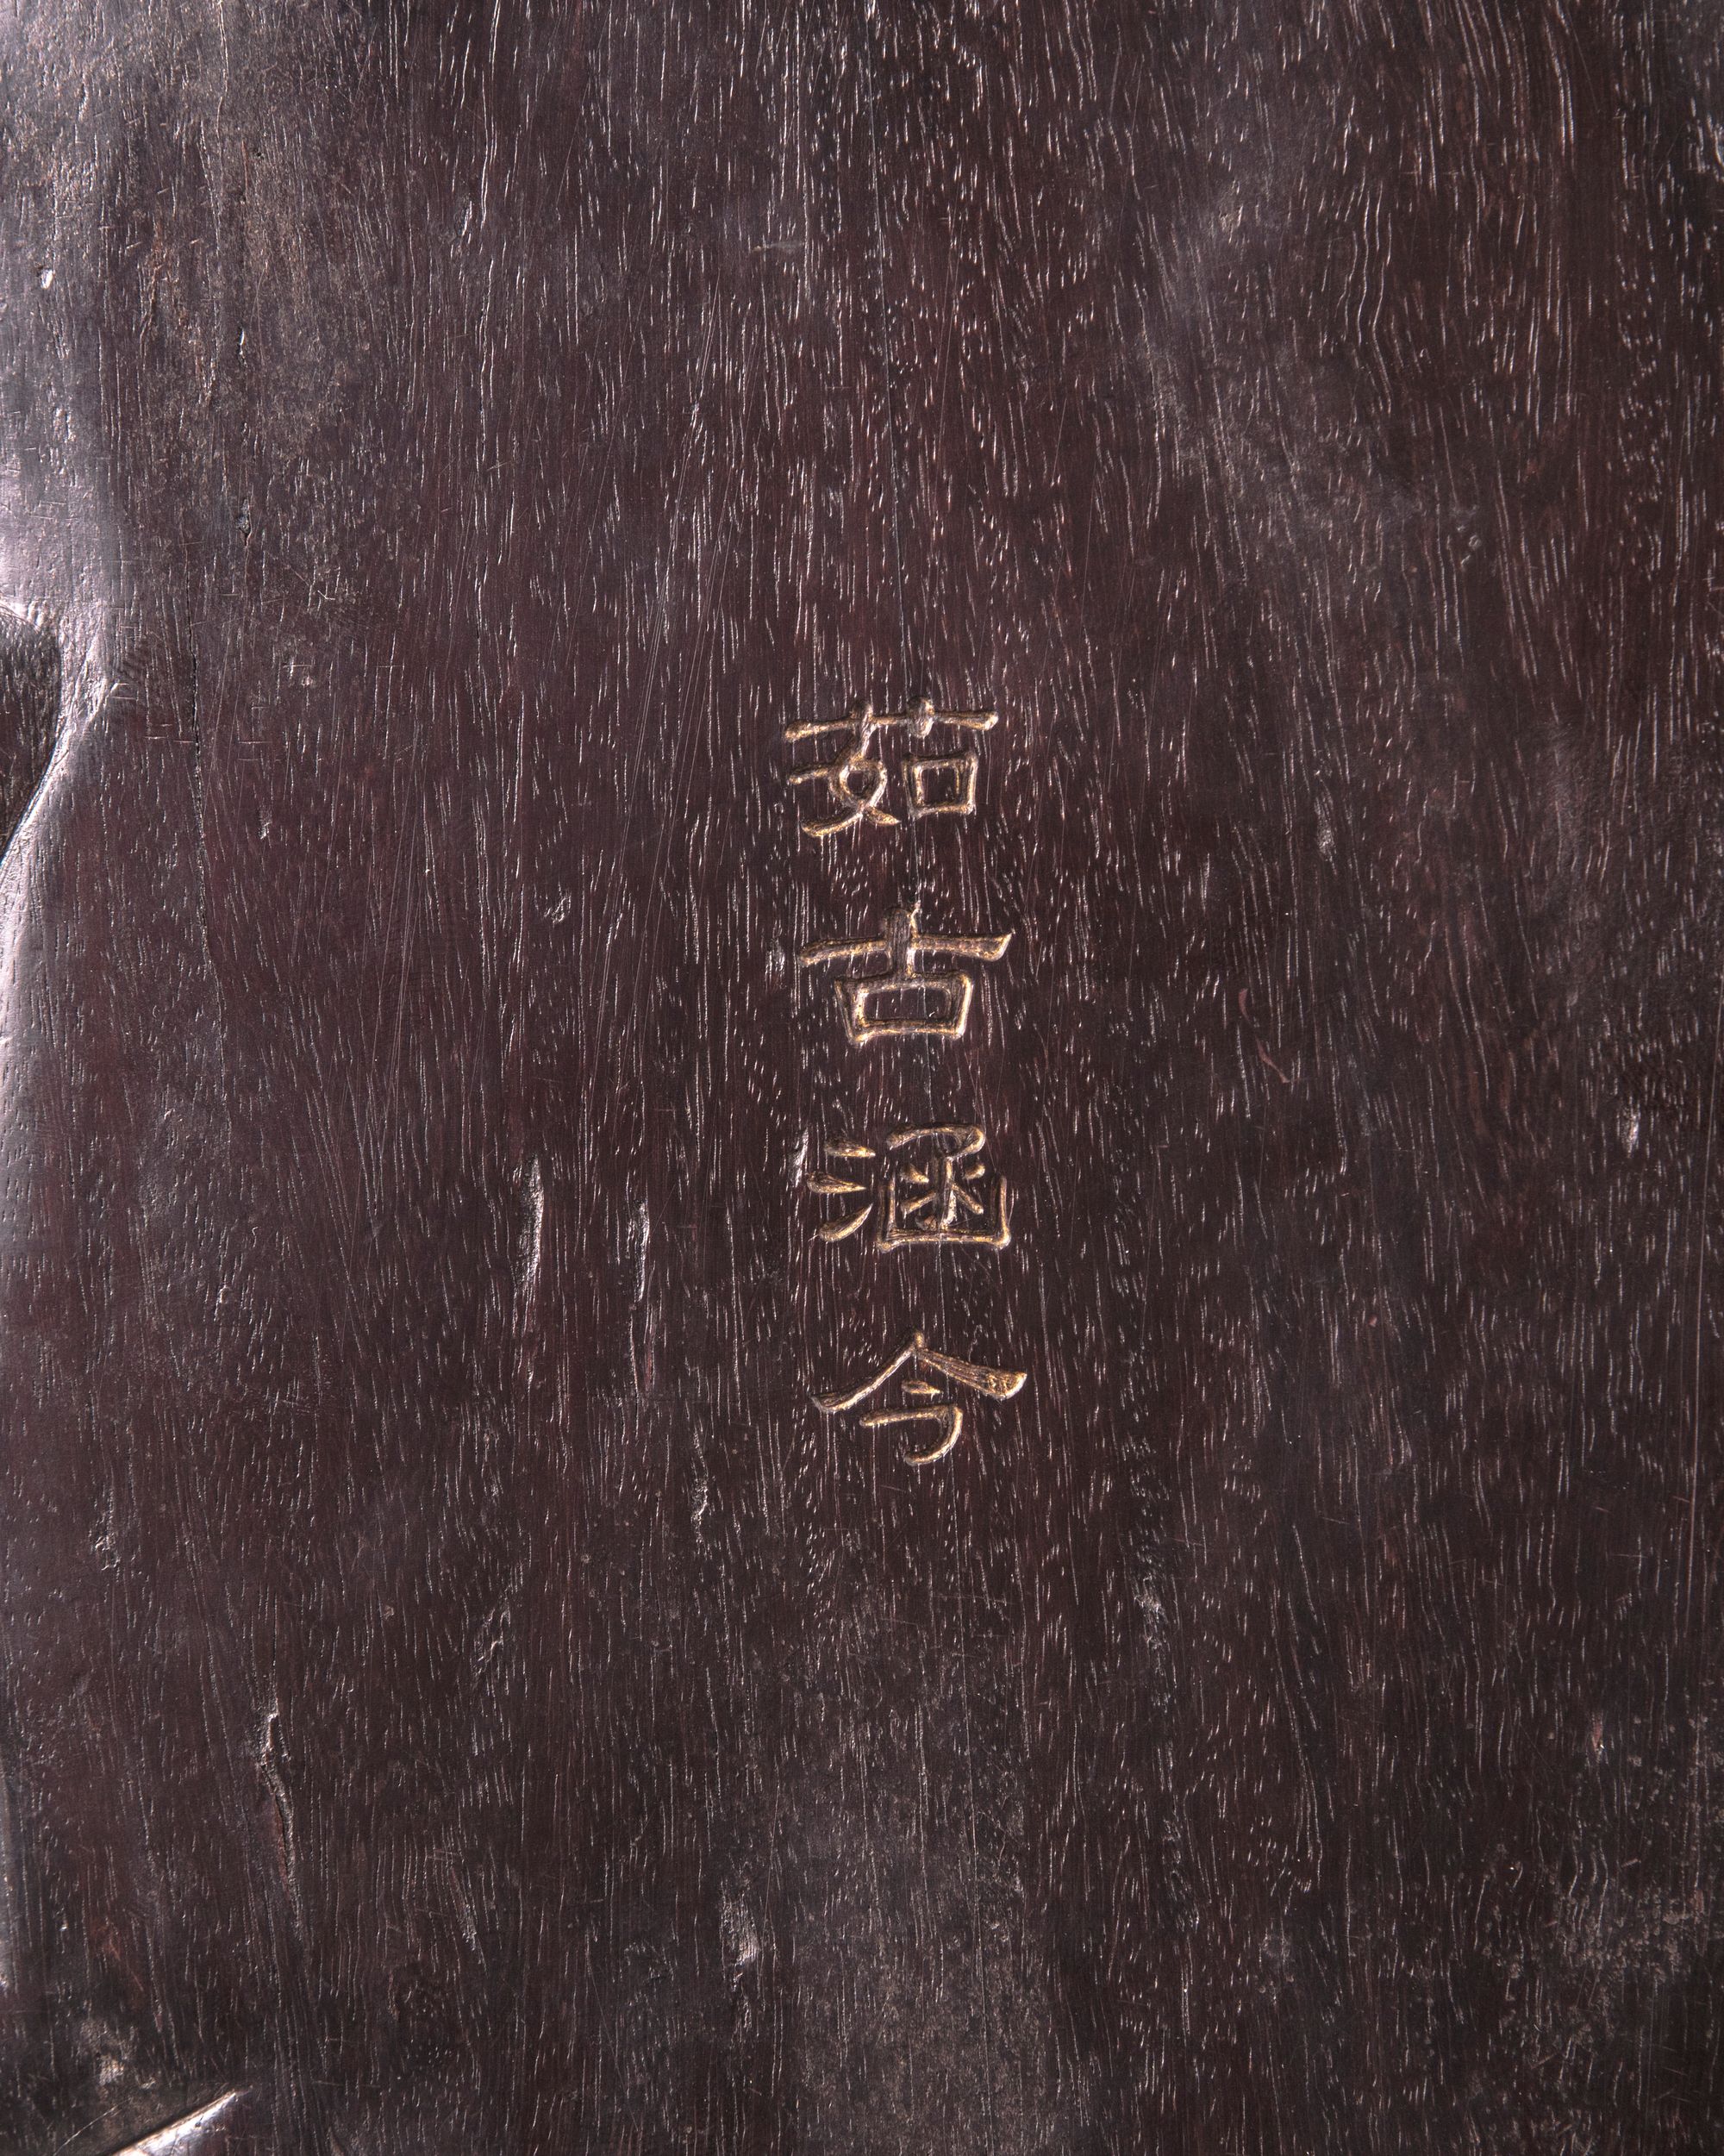 茹古涵今